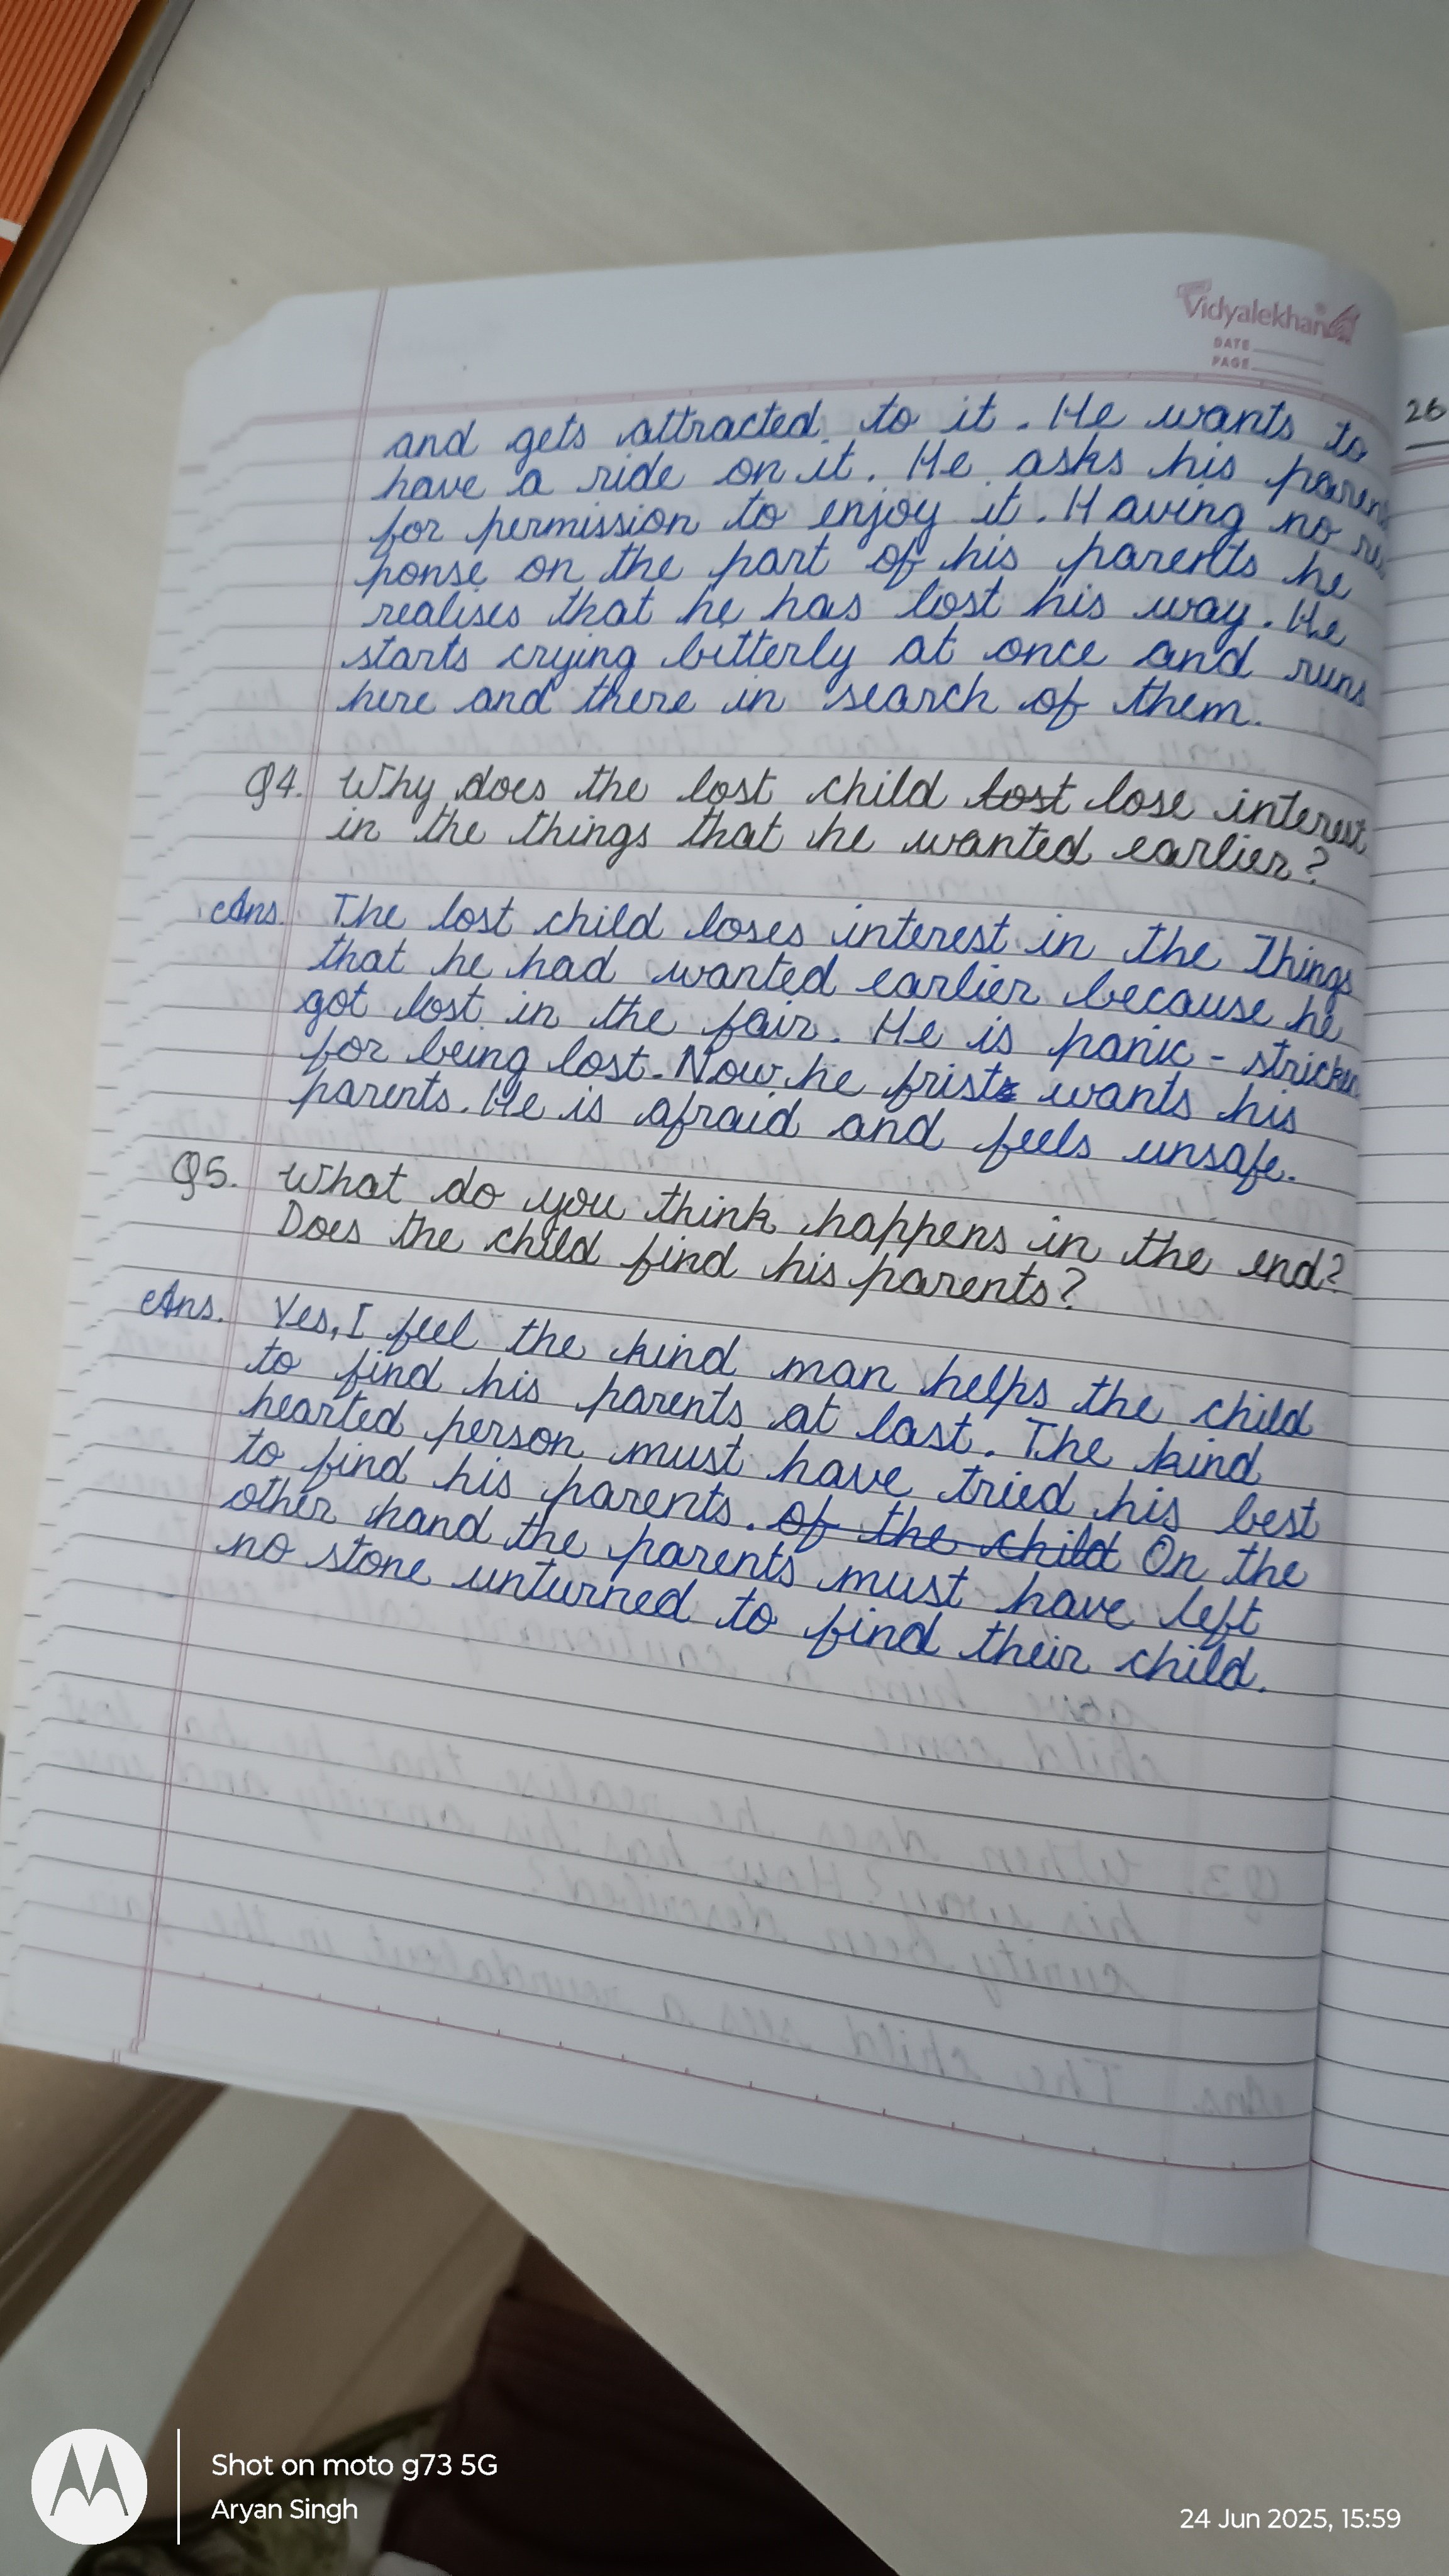 Vidyalekhan
DATE
PAGE
26
and gets attracted to it. He wants to
have a ride on it. He asks his paren
for permission to enjoy it. Having no res
ponse on the part of his parents he
realises that he has lost his way. He
starts crying bitterly at once and runs
here and there in search of them.
Q4. Why does the lost child lost lose interest
in the things that he wanted earlier?
Ans. The lost child loses interest in the Things
that he had wanted earlier because he
got lost in the fair. He is panic - stricken
for being lost. Now he frist wants his
parents. He is afraid and feels unsafe.
Q5. What do you think happens in the end?
Does the child find his parents?
Ans. Yes, I feel the kind man helps the child
to find his parents at last. The kind
hearted person must have tried his best
to find his parents. of the child On the
other hand the parents must have left
no stone unturned to find their child.
Shot on moto g73 5G
Aryan Singh
24 Jun 2025, 15:59